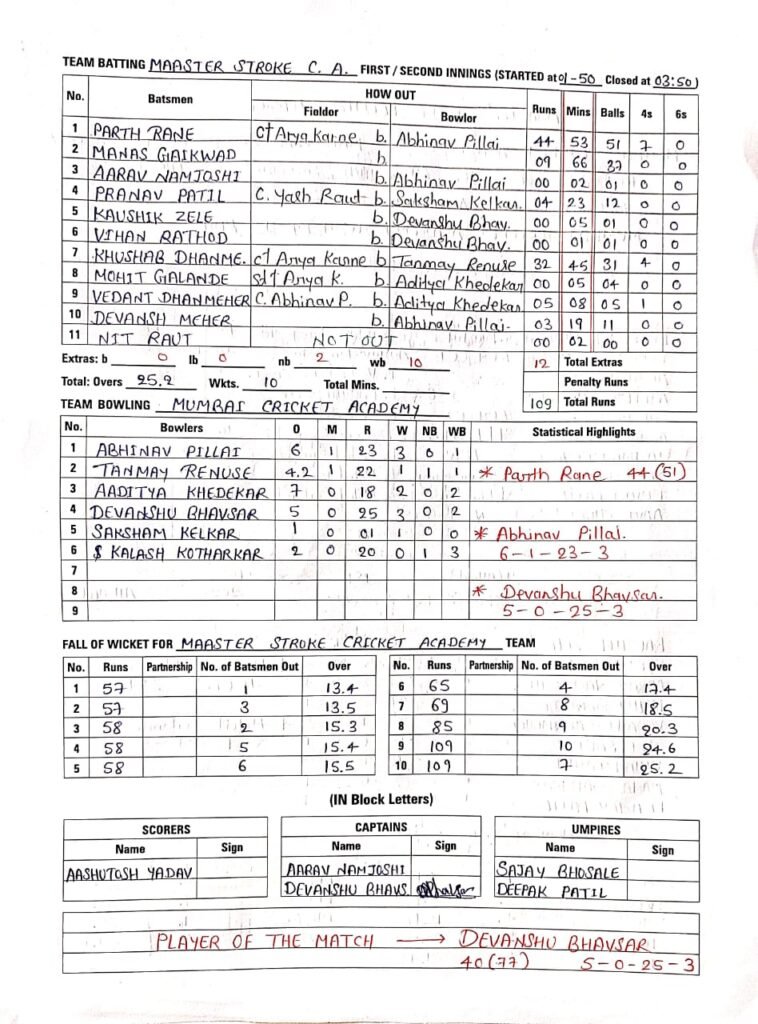 TEAM BATTING MAASTER STROKE C. A. FIRST / SECOND INNINGS (STARTED at 01-50 Closed at 03:50)
No. Batsmen HOW OUT Runs Mins Balls 4s 6s
Fieldor Bowlor
1 PARTH RANE ct Arya Karne b. Abhinav Pillai 44 53 51 7 0
2 MANAS GAIKWAD b. 09 66 37 0 0
3 AARAV NAMJOSHI b. Abhinav Pillai 00 02 01 0 0
4 PRANAV PATIL C. Yash Raut b. Saksham Kelkar. 04 23 12 0 0
5 KAUSHIK ZELE b. Devanshu Bhav. 00 05 01 0 0
6 VIHAN RATHOD b. Devanshu Bhav. 00 01 01 0 0
7 KHUSHAB DHANME. ct Arya Karne b Tanmay Renuse 32 45 31 4 0
8 MOHIT GALANDE st Arya K. b Aditya Khedekar 00 05 04 0 0
9 VEDANT DHANMEHER C. Abhinav P. b. Aditya Khedekar 05 08 05 1 0
10 DEVANSH MEHER b. Abhinav Pillai- 03 19 11 0 0
11 NIT RAUT NOT OUT 00 02 00 0 0
Extras: b 0 lb 0 nb 2 wb 10 12 Total Extras
Penalty Runs
Total: Overs 25.2 Wkts. 10 Total Mins.
109 Total Runs
TEAM BOWLING MUMBAI CRICKET ACADEMY
No. Bowlers O M R W NB WB Statistical Highlights
1 ABHINAV PILLAI 6 1 23 3 0 1
2 TANMAY RENUSE 4.2 1 22 1 1 1 * Parth Rane 44.(51)
3 AADITYA KHEDEKAR 7 0 18 2 0 2
4 DEVANSHU BHAVSAR 5 0 25 3 0 2
5 SAKSHAM KELKAR 1 0 01 1 0 0 * Abhinav Pillai.
6 KALASH KOTHARKAR 2 0 20 0 1 3 6-1-23-3
7
8 * Devanshu Bhavsar.
9 5-0-25-3
FALL OF WICKET FOR MAASTER STROKE CRICKET ACADEMY TEAM
No. Runs Partnership No. of Batsmen Out Over No. Runs Partnership No. of Batsmen Out Over
1 57 1 13.4 6 65 4 17.4
2 57 3 13.5 7 69 8 18.5
3 58 2 15.3 8 85 9 20.3
4 58 5 15.4 9 109 10 24.6
5 58 6 15.5 10 109 7 25.2
(IN Block Letters)
SCORERS CAPTAINS UMPIRES
Name Sign Name Sign Name Sign
AASHUTOSH YADAV AARAV NAMJOSHI SAJAY BHOSALE
DEVANSHU BHAVS. DEEPAK PATIL
PLAYER OF THE MATCH → DEVANSHU BHAVSAR
40(77) 5-0-25-3